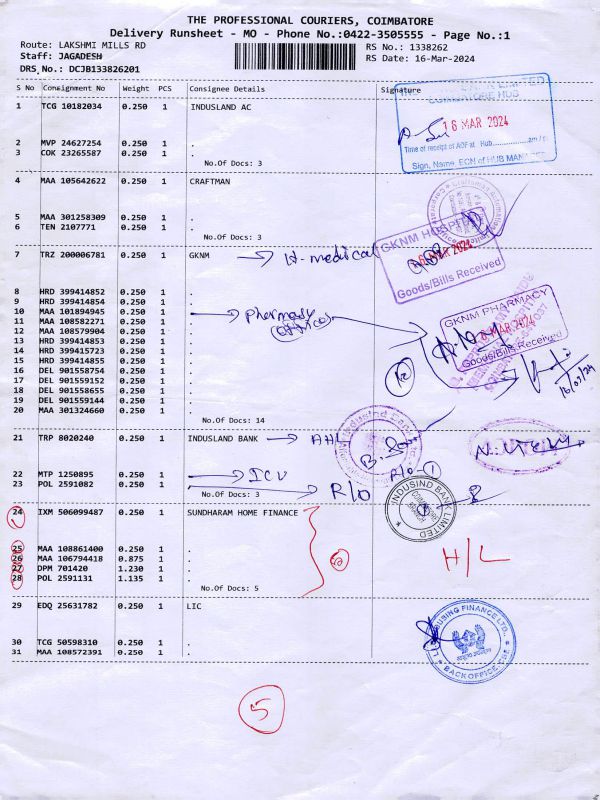 THE PROFESSIONAL COURIERS, COIMBATORE
Delivery Runsheet - MO - Phone No.:0422-3505555 - Page No.:1
Route: LAKSHMI MILLS RD RS No.: 1338262
Staff: JAGADESH RS Date: 16-Mar-2024
DRS No.: DCJB133826201
S No Consignment No Weight PCS Consignee Details Signature
1 TCG 10182034 0.250 1 INDUSLAND AC
COIMBATORE HUB
16 MAR 2024
Time of receipt of AOF at Hub am / p
Sign, Name, ECN of HUB MANAGER
2 MVP 24627254 0.250 1 .
3 COK 23265587 0.250 1 .
No.Of Docs: 3
4 MAA 105642622 0.250 1 CRAFTMAN
5 MAA 301258309 0.250 1 .
6 TEN 2107771 0.250 1 .
No.Of Docs: 3
7 TRZ 200006781 0.250 1 GKNM H-medical
GKNM HOSPITAL
MAR 2024
Goods/Bills Received
8 HRD 399414852 0.250 1 .
9 HRD 399414854 0.250 1 .
10 MAA 101894945 0.250 1 . Pharmacy
11 MAA 108582271 0.250 1 .
12 MAA 108579904 0.250 1 .
13 HRD 399414853 0.250 1 .
14 HRD 399415723 0.250 1 .
15 HRD 399414855 0.250 1 .
16 DEL 901558754 0.250 1 .
17 DEL 901559152 0.250 1 .
18 DEL 901558655 0.250 1 .
19 DEL 901559144 0.250 1 .
20 MAA 301324660 0.250 1 .
No.Of Docs: 14
GKNM PHARMACY
MAR 2024
Goods/Bills Received
16/03/24
21 TRP 8020240 0.250 1 INDUSLAND BANK AHL
22 MTP 1250895 0.250 1 . ICU
23 POL 2591082 0.250 1 . R/O
No.Of Docs: 3
R/O-1
INDUSIND BANK LIMITED
24 IXM 506099487 0.250 1 SUNDHARAM HOME FINANCE
25 MAA 108861400 0.250 1 .
26 MAA 106794418 0.875 1 .
27 DPM 701420 1.230 1 .
28 POL 2591131 1.135 1 .
No.Of Docs: 5
H/L
29 EDQ 25631782 0.250 1 LIC
30 TCG 50598310 0.250 1 .
31 MAA 108572391 0.250 1 .
LIC HOUSING FINANCE LTD.
BACK OFFICE
5